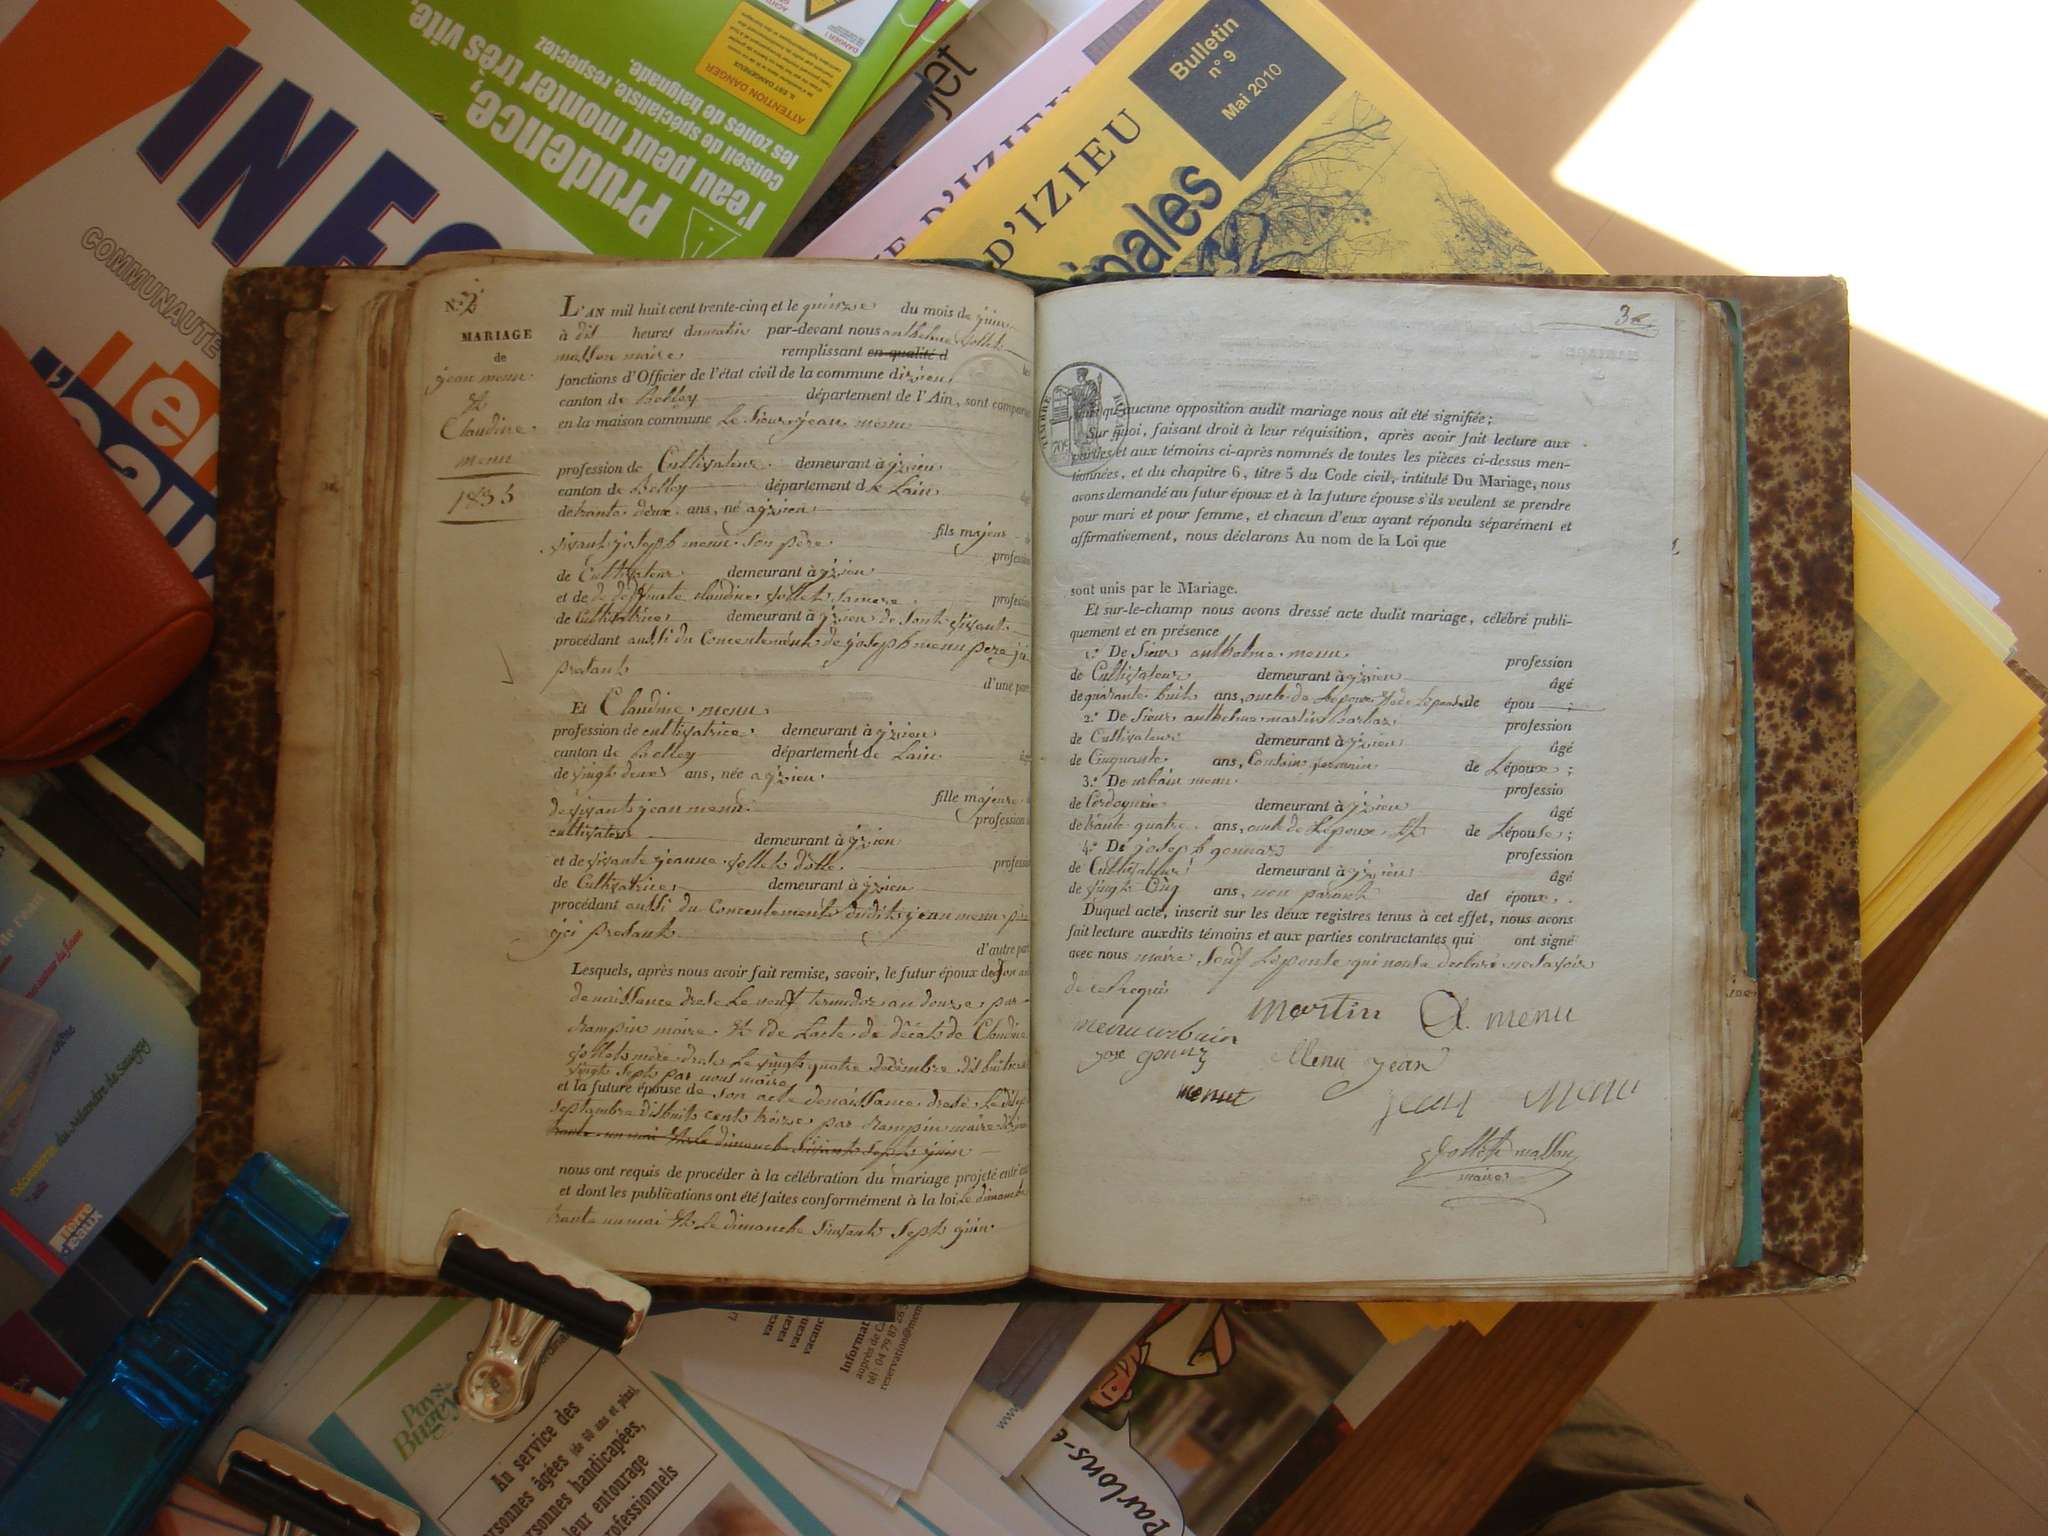 INFO
COMMUNAUTE
Prudence,
l'eau peut monter très vite,
conseil de spécialiste, respectez
les zones de baignade.
ATTENTION DANGER
DANGER!
jet
D'IZIEU
D'IZIEU
ipales
Bulletin
n° 9
Mai 2010
N.º 2
MARIAGE
de
jean menu
&
Claudine
menu
1835
L'AN mil huit cent trente-cinq et le quinze du mois de juin
à dis heures dumatin par-devant nous anthelme jollet
masson maire remplissant en qualité d les
fonctions d'Officier de l'état civil de la commune dizieu
canton de Belley département de l'Ain, sont comparus
en la maison commune Le Sieur jean menu
profession de Cultivateur demeurant à yzieu
canton de Belley département de Lain âgé
de trante deux ans, né a yzieu
fils majeur de
vivant joseph menu son père profession
de Cultivateur demeurant à yzieu
et de defunte claudine jollet sa mere profession
de Cultivatrice demeurant à yzieu de sont vivant
procédant aussi du Concentement de joseph menu pere ji
presant
d'une part
Et Claudine menu
profession de cultivatrice demeurant à yzieu
canton de Belley département de Lain âgé
de vingt deux ans, née a yzieu
fille majeure
de vivant jean menu profession
cultivateur demeurant à yzieu
et de vivante jeanne jollet profession
de Cultivatrice demeurant à yzieu
procédant aussi du Concentement dudit jean menu père
yci presant
d'autre part
Lesquels, après nous avoir fait remise, savoir, le futur époux de son acte
de naissance dresé Le neuf termidor an douze par
Rampin maire & de Lacte de décès de Claudine
jollet mère dresé Le vingt quatre decembre dis huit cent
vingt sept par nous maire
et la future épouse de son acte de naissance dresé Le dis
septambre dishuit cent treize par Rampin maire
trante un mai & Le dimanche suivant sept juin
nous ont requis de procéder à la célébration du mariage projeté entr'eux
et dont les publications ont été faites conformément à la loi Le dimanche
trante un mai & Le dimanche suivant sept juin
3
TIMBRE ROYAL
70c
sans qu'aucune opposition audit mariage nous ait été signifiée;
Sur quoi, faisant droit à leur réquisition, après avoir fait lecture aux
parties et aux témoins ci-après nommés de toutes les pièces ci-dessus men-
tionnées, et du chapitre 6, titre 5 du Code civil, intitulé Du Mariage, nous
avons demandé au futur époux et à la future épouse s'ils veulent se prendre
pour mari et pour femme, et chacun d'eux ayant répondu séparément et
affirmativement, nous déclarons Au nom de la Loi que
sont unis par le Mariage.
Et sur-le-champ nous avons dressé acte dudit mariage, célébré publi-
quement et en présence
1.º De Sieur anthelme menu profession
de Cultivateur demeurant à yzieu âgé
de quarante huit ans, oncle de Lépoux & de Lépouse de épou ;
2.º De Sieur anthelme martin barbaz profession
de Cultivateur demeurant à yzieu âgé
de Cinquante ans, Cousin germain de Lépoux ;
3.º De urbain menu professio
de Cordonnier demeurant à yzieu âgé
de trante quatre ans, oncle de Lépoux & de Lépouse ;
4.º De joseph gonnard profession
de Cultivateur demeurant à yzieu âgé
de vingt Cinq ans, non parant des époux .
Duquel acte, inscrit sur les deux registres tenus à cet effet, nous avons
fait lecture auxdits témoins et aux parties contractantes qui ont signé
avec nous maire Sauf Lépouse qui nous a declaré ne savoir
de ce Requis
Martin A. menu
menu urbain
Menu jean
menut
jean Menu
jollet masson
maire
Pays
Bugey
Au service des
personnes âgées (de 60 ans et plus),
personnes handicapées,
leur entourage
professionnels
vacan
vacan
vacanc
Informat
auprès de Ca
tél : 04 79 87
reservation@mem
www.
Parlons-
terre
d'eaux